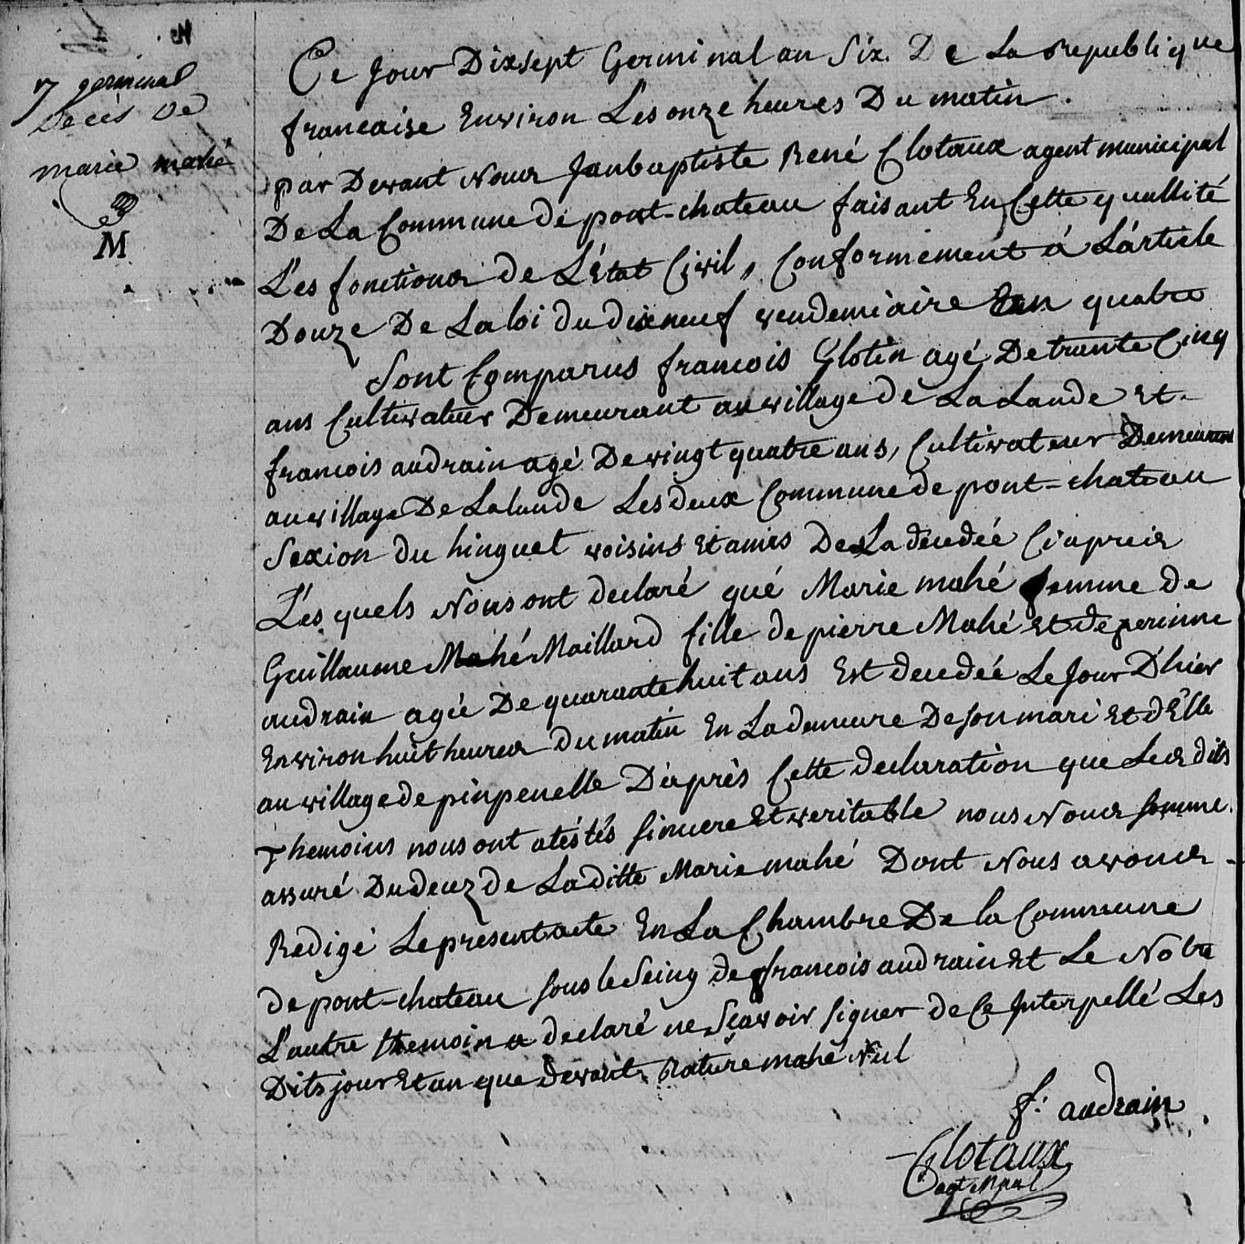 17 germinal
Deceis de
marie mahé
M
Ce jour Dixsept Germinal an Six. De La Republique
francaise Environ Les onze heures Du matin.
par Devant Nous Janbaptiste René Clotaux agent municipal
De La Commune de pont-chateau faisant En Cette quallité
L'es fonctions de L'état Civil, Conformement á L'article
Douze De La loi du dixneuf vendemiaire En quatre
Sont Comparus francois Glotin agé De trente Cinq
ans Cultivateur Demeurant au village de La Lande et-
francois audrain agé De vingt quatre ans, Cultivateur Demeurant
au village De Lalande Les deux Commune de pont-chateau
Sexion du hinguet voisins et amis De La decedée Ciapreis
L'es quels Nous ont declaré qué Marie mahé femme de
Guillaume Mahé Maillard fille de pierre Mahé et de perinne
audrain agée De quarante huit ans Est decedée Le Jour D'hier
Environ huit heures du matin En La demeure De son mari Et d'Elle
au village de pinpenelle D'áprès Cette declaration que Les dits
themoins nous ont atéstés sincere Et veritable nous Nous somme
assuré Du decez de Laditte Marie mahé Dont Nous avons -
Redigé Le present acte En La Chambre De la Commune
de pont-chateau sous le Seing de francois audrain et Le Notre
L'autre themoin a declaré ne Sçavoir signer de Ce Interpellé Les
Dits jour Et an que devant, Rature mahé Nul
f: audrain
Clotaux
agt Mpal